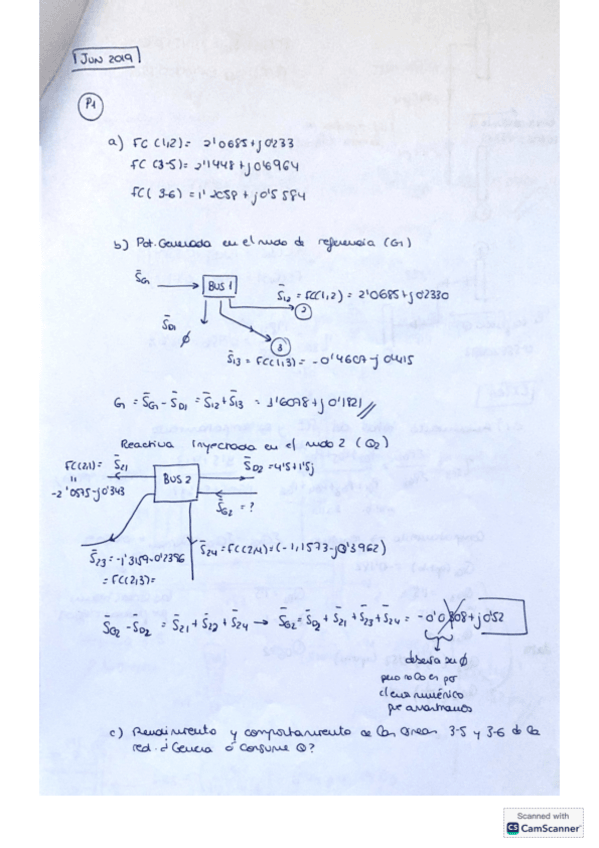 JUN 2019
P1
a) FC (1,2) = 2'0685+j0233
FC (3-5) = 2'1448+j0'6964
FC (3-6) = 1'2058+j0'5584
b) Pot. Generada en el nudo de referencia (G1)
S̄G1
BUS 1
S̄12 = FC(1,2) = 2'0685+j0'2330
2
S̄D1
∅
3
S̄13 = FC(1,3) = -0'4607-j0415
G1 = S̄G1 - S̄D1 = S̄12 + S̄13 = 1'6078+j0'1821
Reactiva inyectada en el nudo 2 (Q2)
FC(2,1) = S̄21
"
-2'0575-j0'343
BUS 2
S̄D2 = 4'5+1'5j
S̄G2 = ?
S̄23 = -1'3159-0'2396
= FC(2,3) =
S̄24 = FC(2,4) = (-1,1573-j0'3962)
S̄G2 - S̄D2 = S̄21 + S̄23 + S̄24 → S̄G2 = S̄D2 + S̄21 + S̄23 + S̄24 = -0'0308+j0'52
debería ser ∅
pero no lo es por
el error numérico
que arrastramos
c) Rendimiento y comportamiento de las líneas 3-5 y 3-6 de la
red. ¿Genera o consume Q?
Scanned with
CS CamScanner